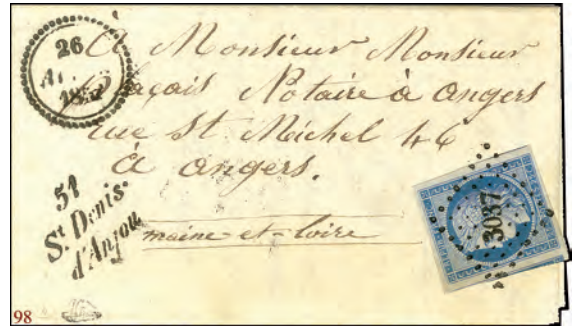 26
À Monsieur Monsieur
Notaire à angers
rue St Michel 46
à angers.
51
St Denis-
d'Anjou
maine-et-Loire
3037
98